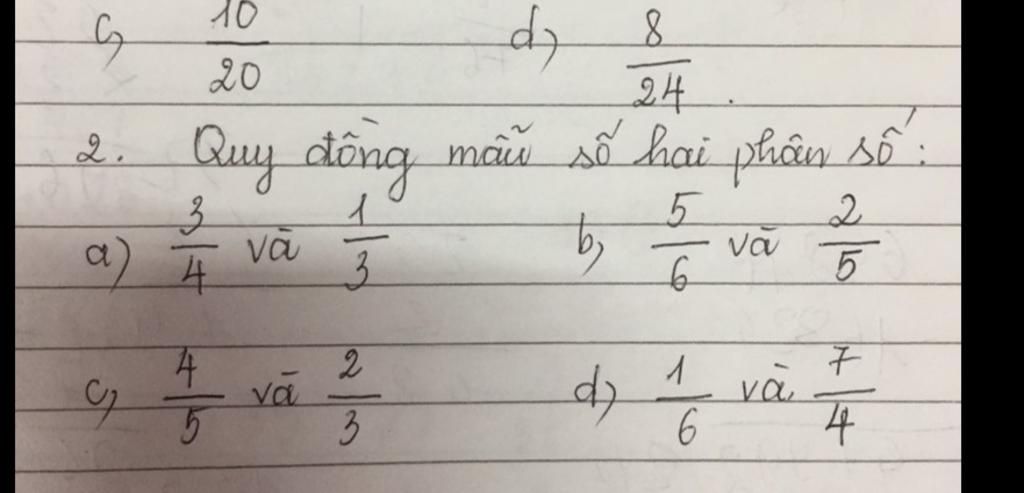 c, 10/20 d) 8/24.
2. Quy đồng mẫu số hai phân số:
a) 3/4 và 1/3 b, 5/6 và 2/5
c, 4/5 và 2/3 d) 1/6 và 7/4